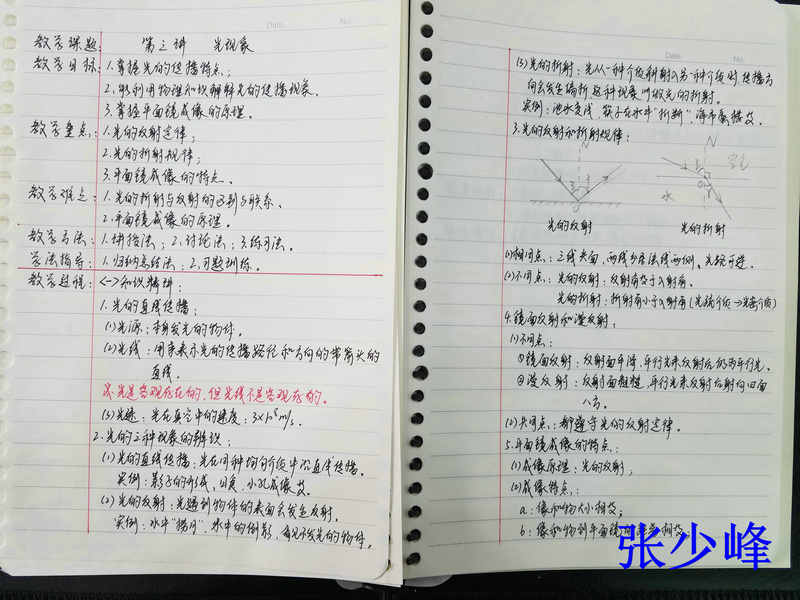 Date.
No.
教学课题: 第三讲 光现象
教学目标: 1.掌握光的传播特点;
2.能利用物理知识解释光的传播现象.
3.掌握平面镜成像的原理.
教学重点: 1.光的反射定律;
2.光的折射规律;
3.平面镜成像的特点.
教学难点: 1.光的折射与反射的区别与联系.
2.平面镜成像的原理.
教学方法: 1.讲授法; 2.讨论法; 3.练习法.
学法指导: 1.归纳总结法; 2.习题训练.
教学过程: <一>知识精讲:
1.光的直线传播:
(1)光源:本身发光的物体.
(2)光线:用来表示光的传播路径和方向的带箭头的
直线.
※光是客观存在的,但光线不是客观存在的.
(3)光速:光在真空中的速度:3×10⁸m/s.
2.光的三种现象的辨识:
(1)光的直线传播:光在同种均匀介质中沿直线传播.
实例:影子的形成、日食、小孔成像等.
(2)光的反射:光遇到物体的表面会发生反射.
实例:水中"捞月",水中的倒影,看见不发光的物体.
Date.
No.
(3)光的折射:光从一种介质斜射入另一种介质时,传播方
向会发生偏折这种现象叫做光的折射.
实例:池水变浅,筷子在水中"折断",海市蜃楼等.
3.光的反射和折射规律:
N
N
空气
水
光的反射 光的折射
(1)相同点:三线共面,两线分居法线两侧,光路可逆.
(2)不同点:光的反射:反射角等于入射角.
光的折射:折射角小于入射角(光疏介质→光密介质)
4.镜面反射和漫反射:
(1)不同点:
①镜面反射:反射面平滑,平行光束反射后仍为平行光.
②漫反射:反射面粗糙,平行光束反射后射向四面
八方.
(2)共同点:都遵守光的反射定律.
5.平面镜成像的特点:
(1)成像原理:光的反射;
(2)成像特点:
a:像和物大小相等;
b:像和物到平面镜的距离相等;
张少峰